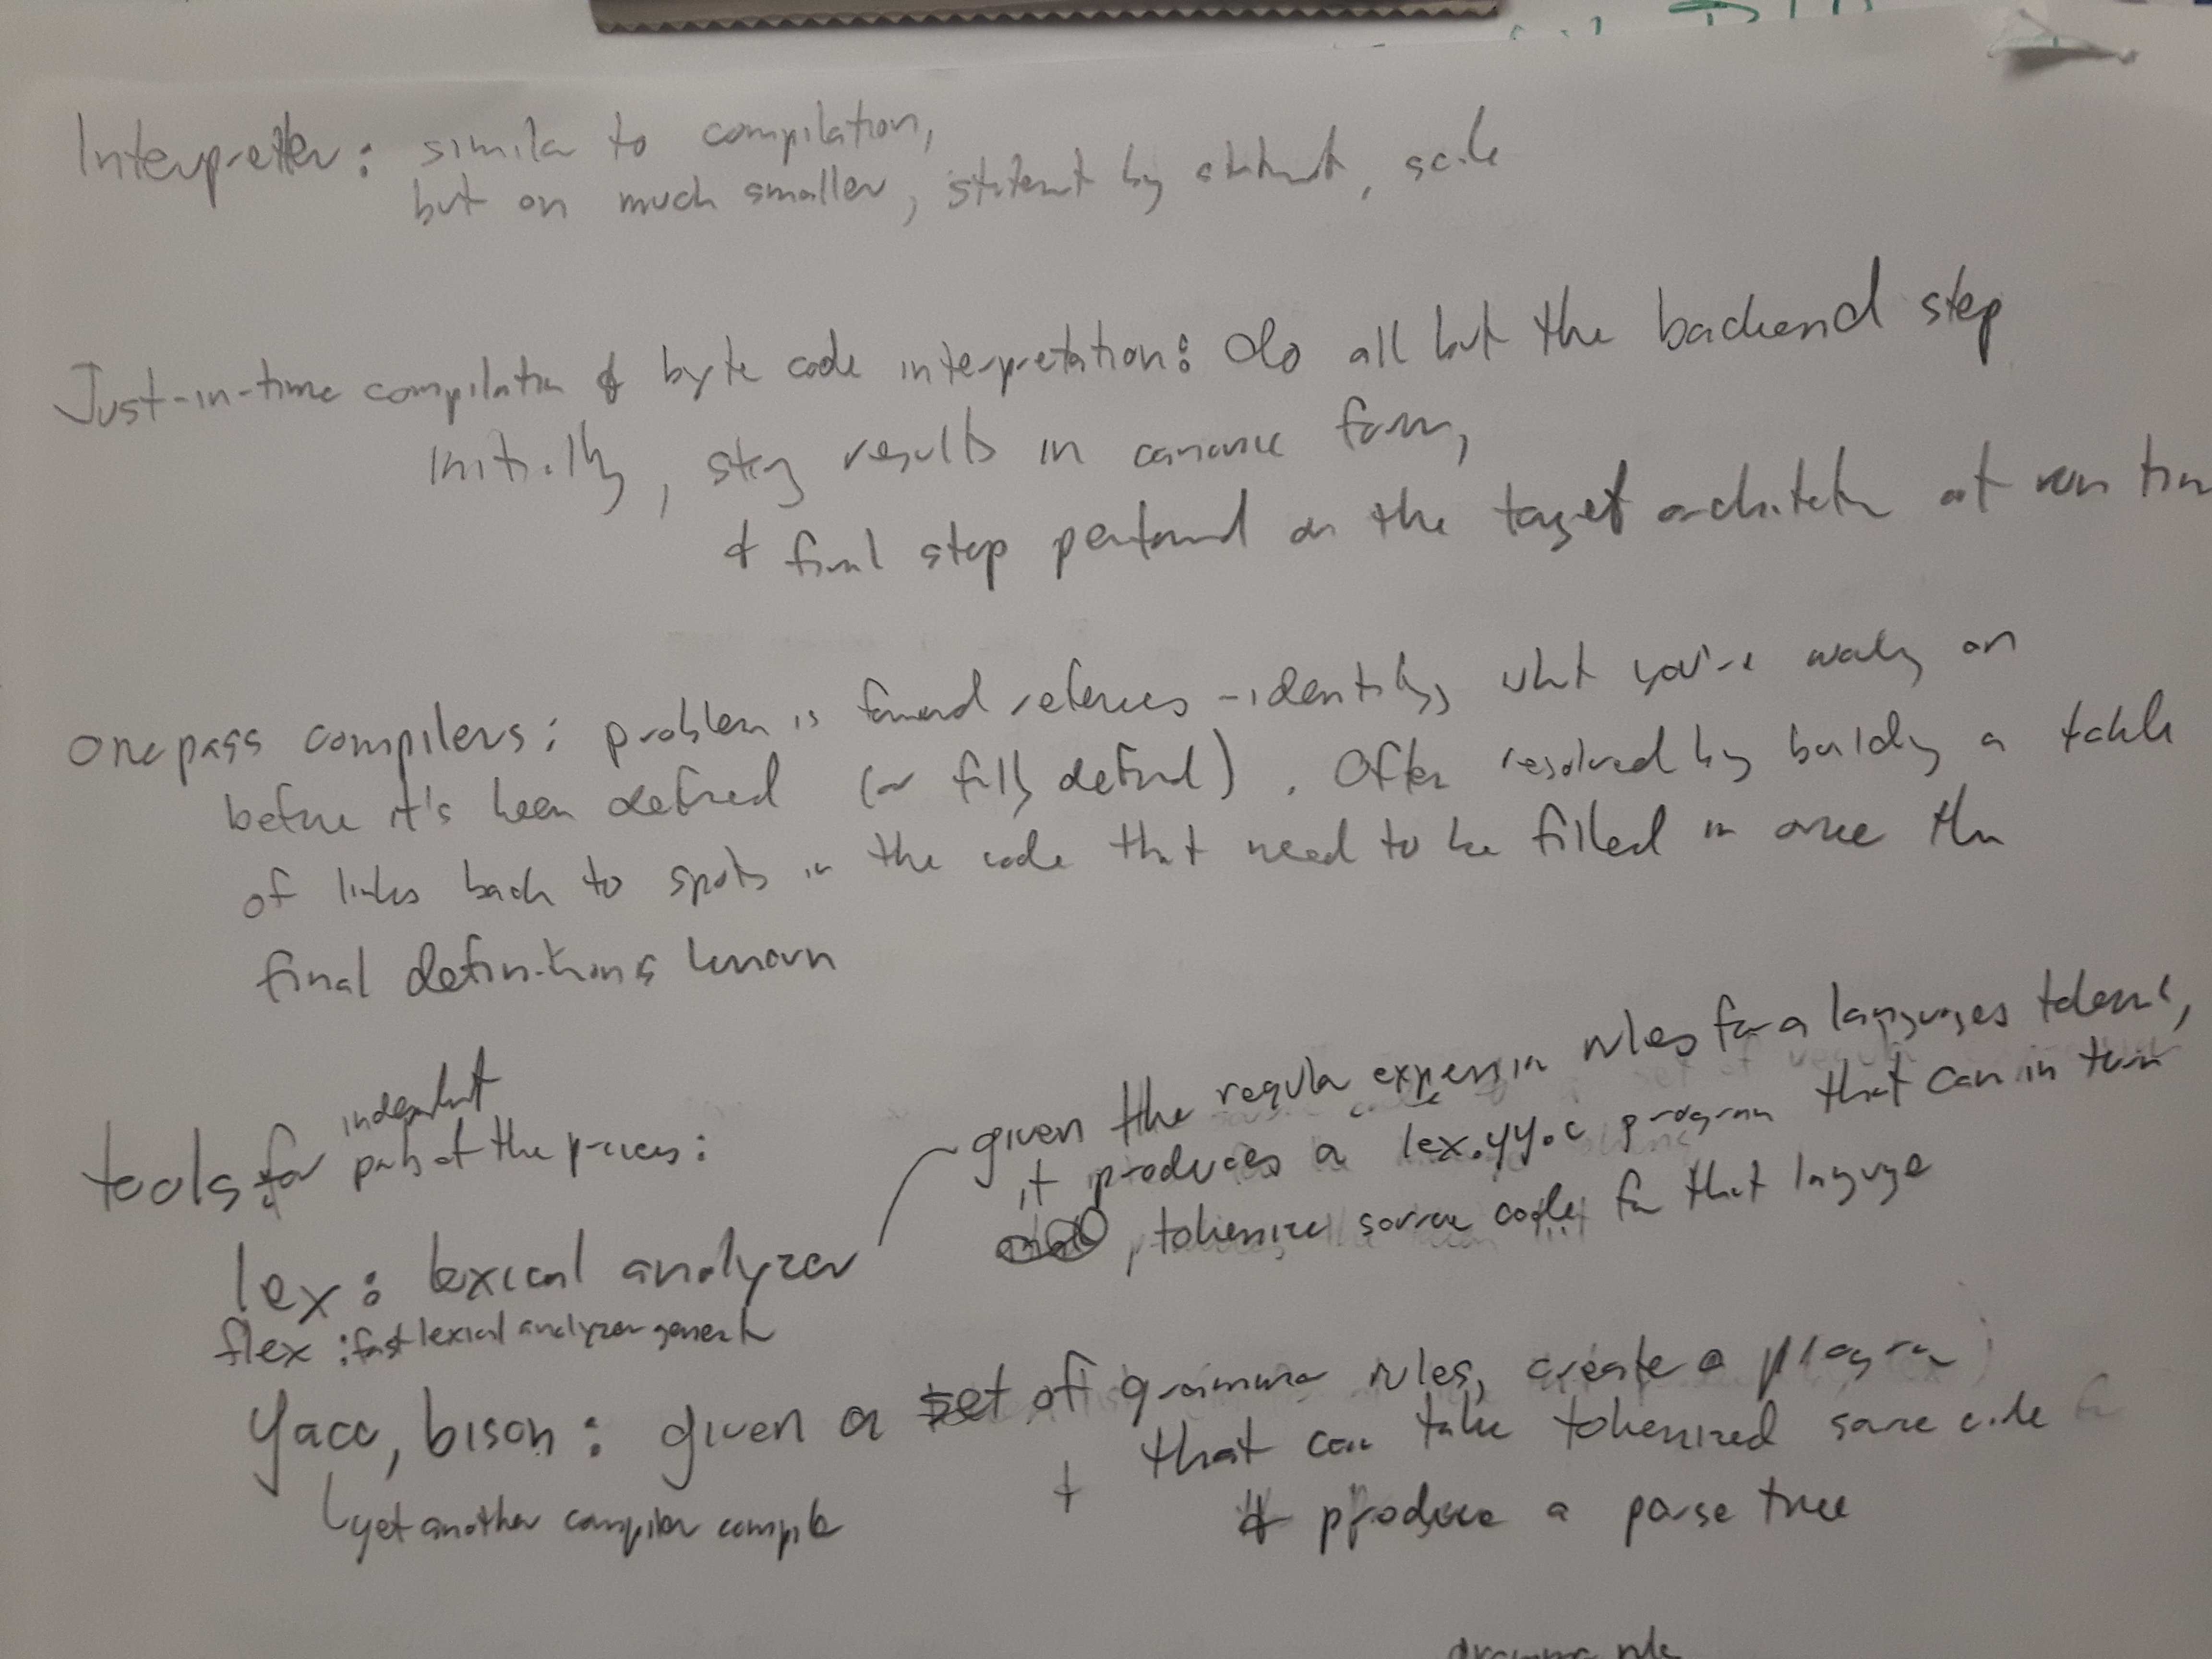 Interpreter: similar to compilation,
but on much smaller, statement by statement, scale
Just-in-time compilation & byte code interpretation: do all but the backend step
initially, store results in canonic form,
& final step performed on the target architecture at run time
one pass compilers: problem is forward references - identifying what you're working on
before it's been defined (or fully defined). Often resolved by building a table
of links back to spots in the code that need to be filled in once the
final definition is known
tools for independent parts of the process:
given the regular expression rules for a languages tokens,
it produces a lex.yy.c program that can in turn
tokenize source code for that language
lex: lexical analyzer
flex: fast lexical analyzer generator
yacc, bison: given a set of grammar rules, create a program
that can take tokenized source code
& produce a parse tree
yet another compiler compiler
grammar rule